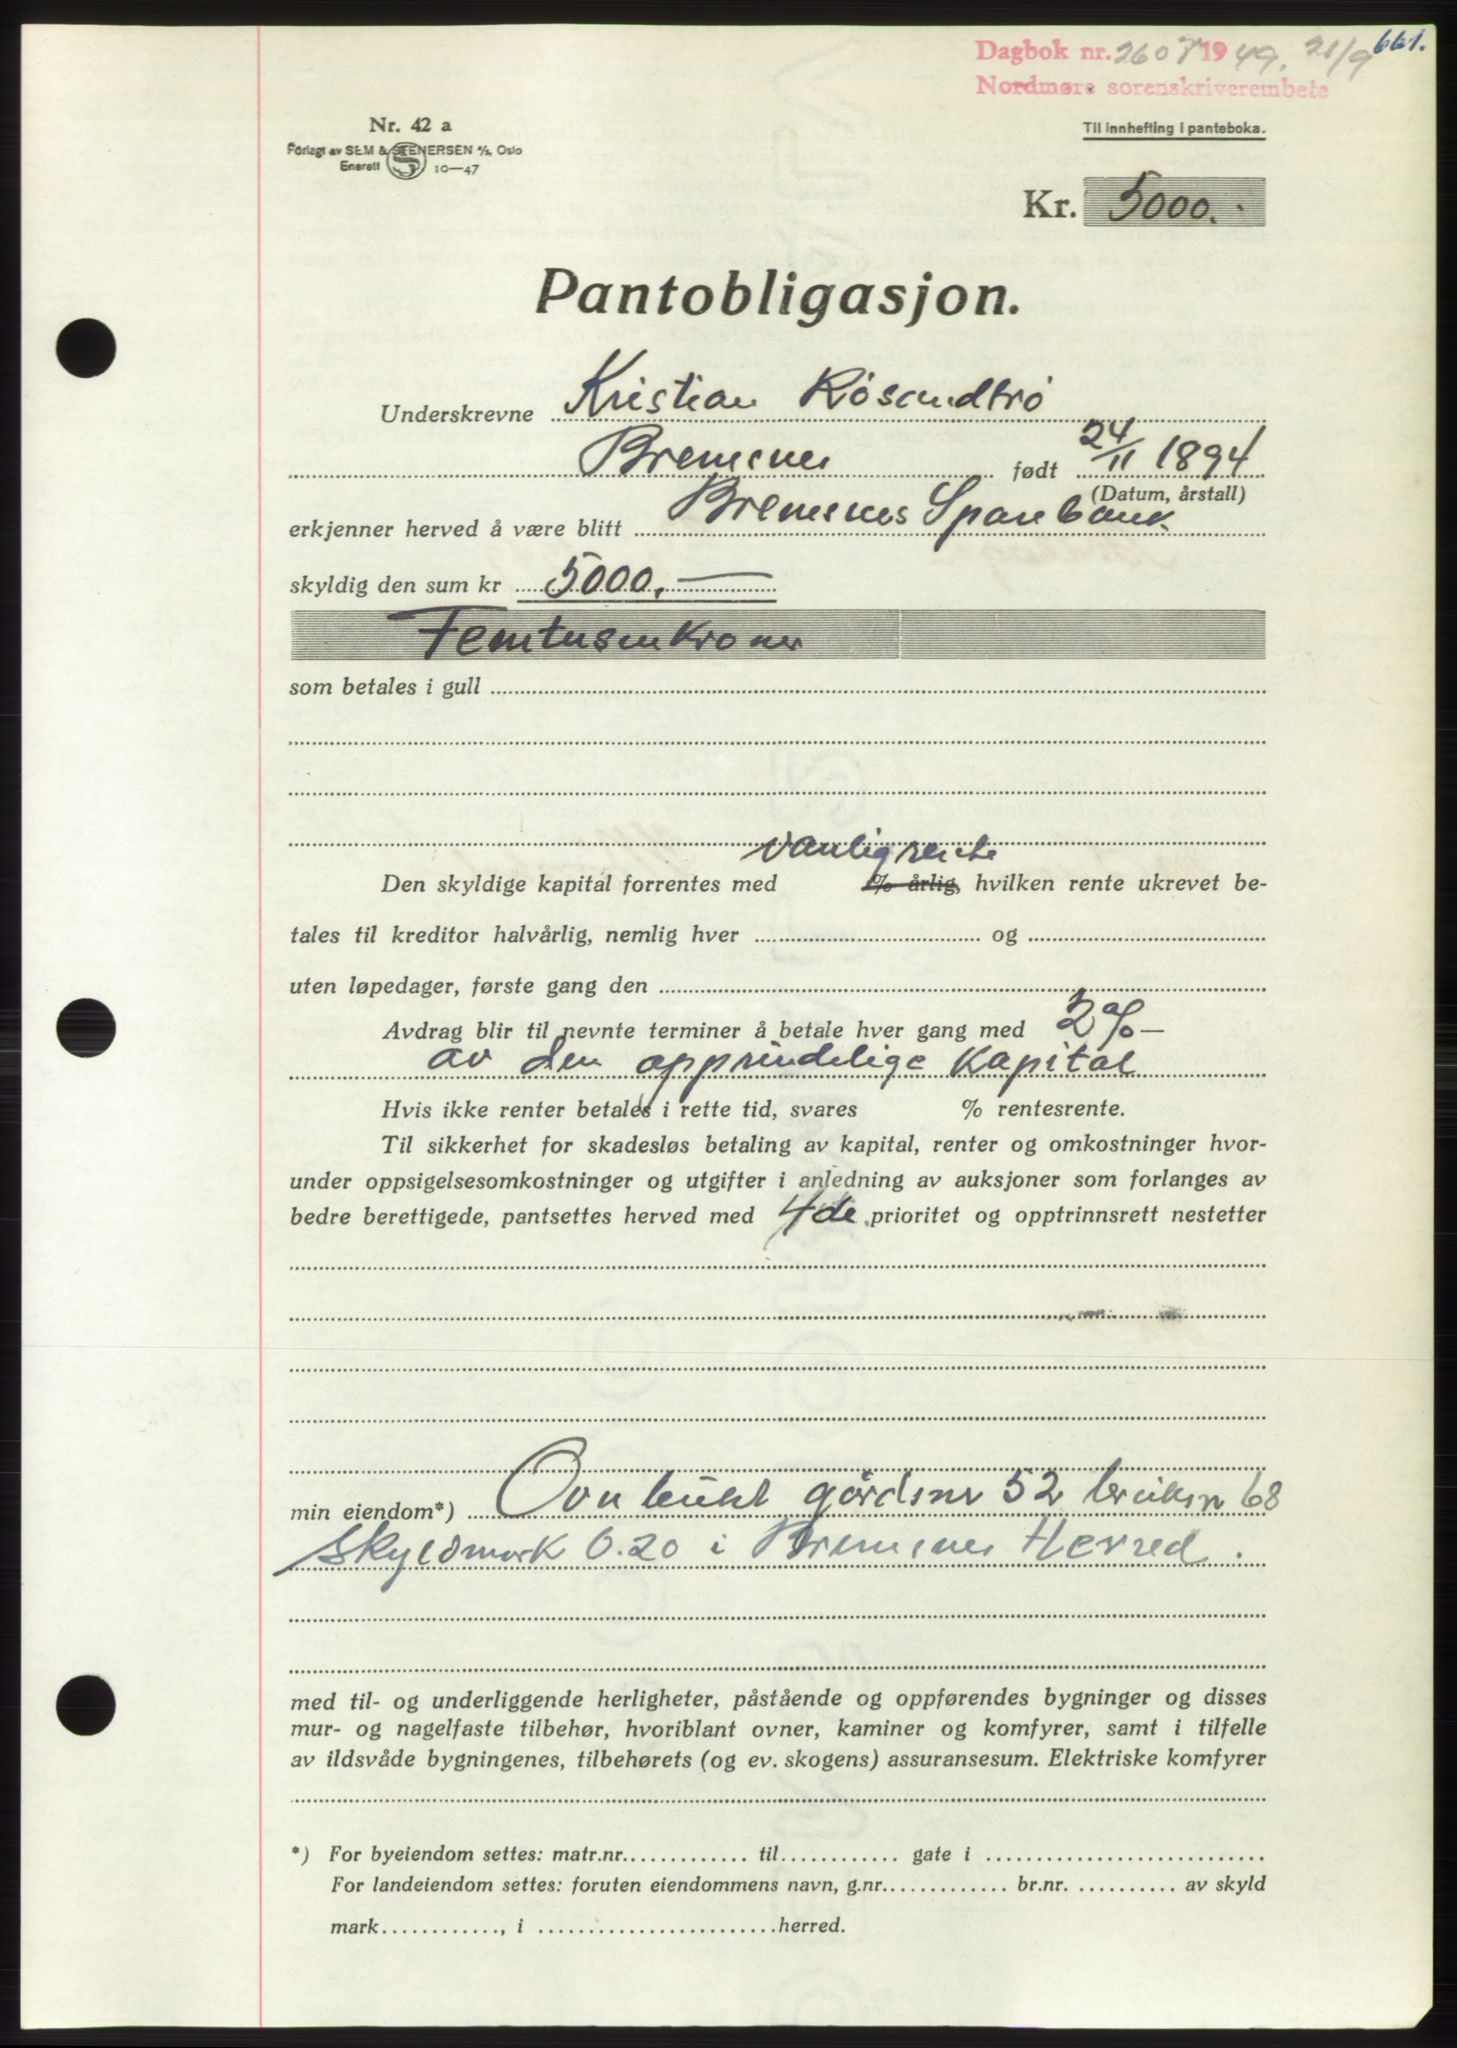 661.
Dagbok nr. 2607 1949. 21/9
Nordmøre sorenskriverembete
Nr. 42 a
Forlagt av SEM & STENERSEN A/S, Oslo
Enerett S 10—47
Til innhefting i panteboka.
Kr. 5000.-
Pantobligasjon.
Underskrevne Kristian Røsandtrø
Bremsnes født 24/11 1894
(Datum, årstall)
erkjenner herved å være blitt Bremsnes Sparebank
skyldig den sum kr 5000,—
Femtusenkroner
som betales i gull
vanlig rente
Den skyldige kapital forrentes med % årlig, hvilken rente ukrevet be-
tales til kreditor halvårlig, nemlig hver og
uten løpedager, første gang den
Avdrag blir til nevnte terminer å betale hver gang med 2% —
av den opprindelige kapital
Hvis ikke renter betales i rette tid, svares % rentesrente.
Til sikkerhet for skadesløs betaling av kapital, renter og omkostninger hvor-
under oppsigelsesomkostninger og utgifter i anledning av auksjoner som forlanges av
bedre berettigede, pantsettes herved med 4de prioritet og opptrinnsrett nestetter
min eiendom*) gårdsnr 52 bruksnr 68
Skyldmark 0.20 i Bremsnes Herred.
med til- og underliggende herligheter, påstående og oppførendes bygninger og disses
mur- og nagelfaste tilbehør, hvoriblant ovner, kaminer og komfyrer, samt i tilfelle
av ildsvåde bygningenes, tilbehørets (og ev. skogens) assuransesum. Elektriske komfyrer
*) For byeiendom settes: matr.nr. til gate i
For landeiendom settes: foruten eiendommens navn, g.nr. br.nr. av skyld
mark , i herred.